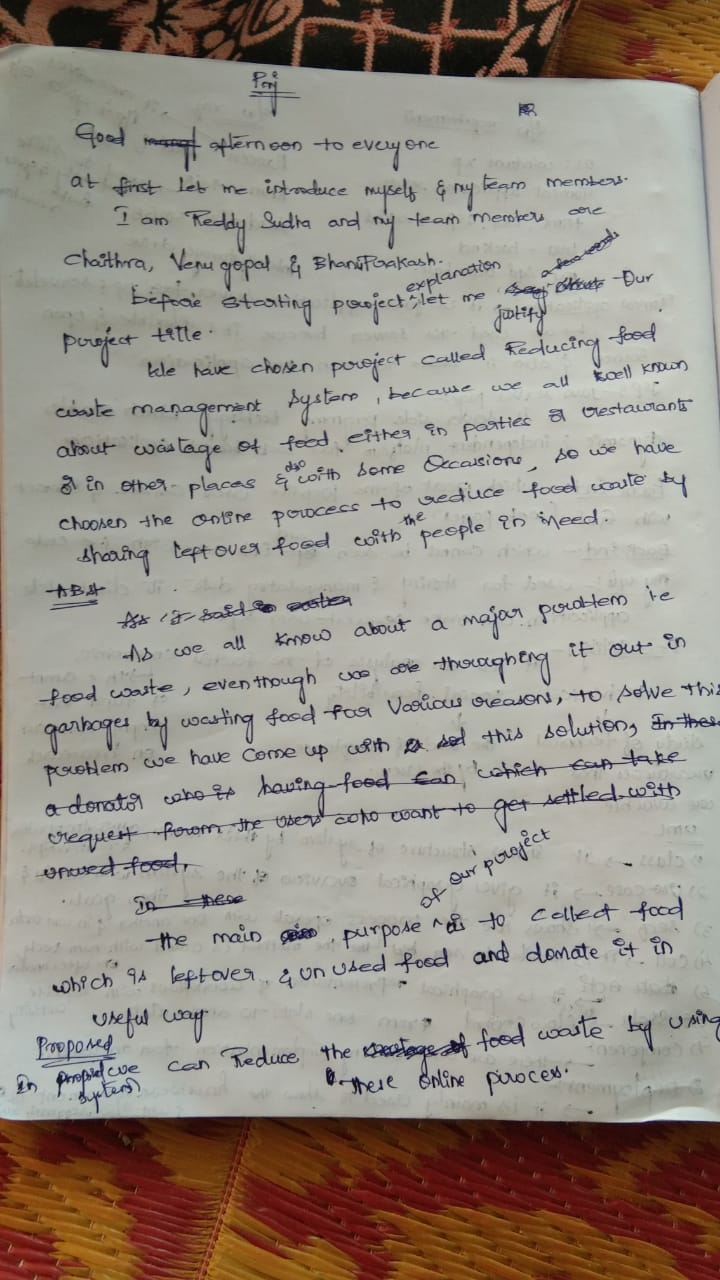 Prj
Good afternoon to everyone
at first let me introduce myself & my team members.
I am Reddy Sudha and my team members are
Chaithra, Venu gopal & BhanuPrakash.
before starting project explanation, let me justify a few words Our
puroject title.
We have chosen puroject called Reducing food
waste management System, because we all well known
about wastage of food either in parties & restaurants
& in other places & also with some Occasions, so we have
choosen the online process to reduce food waste by
sharing leftover food with the people in need.
ABst
As I said
As we all know about a major problem i.e
food waste, eventhough we are thouroughing it out in
garbages by wasting food for Various reasons, to solve this
problem we have come up with this solution, In these
a donator who is having food can, which can take
request from the users who want to get settled with
unused food.
In these
the main purpose of our puroject is to collect food
which is leftover & un used food and domate it in
useful way.
Proposed
In propsed system we can Reduce the wastage of food waste by using
these online puroces.